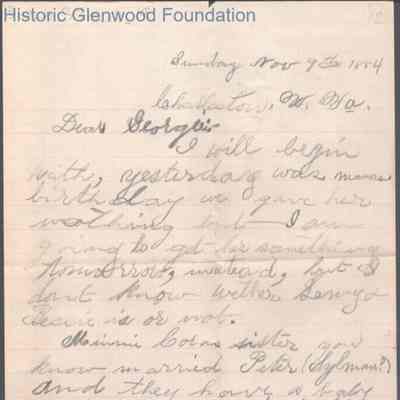 Historic Glenwood Foundation
Sunday Nov 9th 1884
Charleston, W. Va.
Dear Georgie
I will begin
with, yesterday was mamas
birthday we gave her
nothing but I am
going to get her something
tomorrow, instead, but I
dont know wether
is or not.
Minnie sister you
know married Peter
and they have a baby